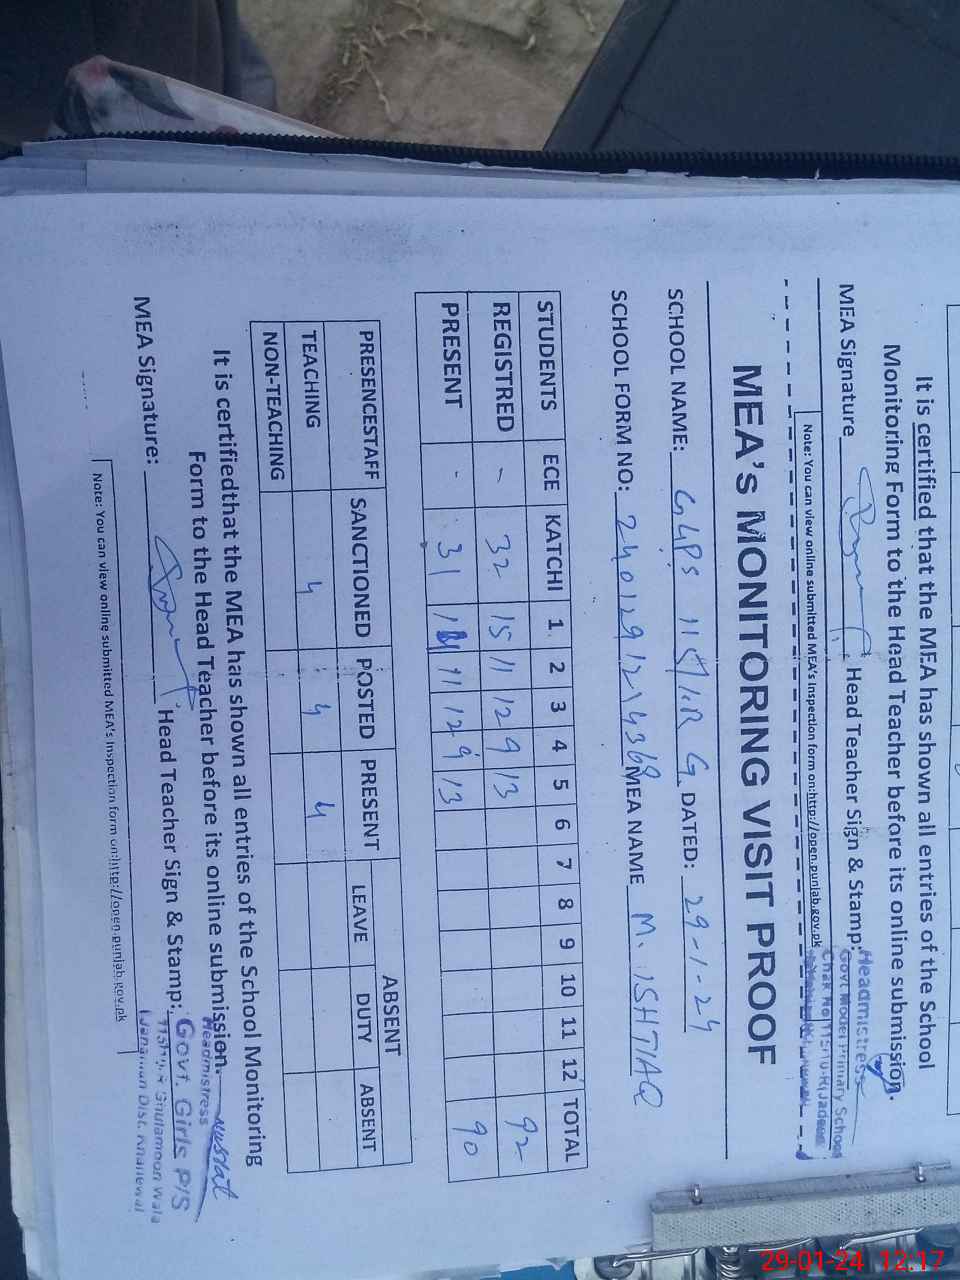 It is certified that the MEA has shown all entries of the School
Monitoring Form to the Head Teacher before its online submission.
MEA Signature Head Teacher Sign & Stamp:
Headmistress
Govt Model Primary School
Chak No
Note: You can view online submitted MEA's Inspection form on:http://open.punjab.gov.pk
MEA's MONITORING VISIT PROOF
SCHOOL NAME: GGPS 115/10R G. DATED: 29-1-24
SCHOOL FORM NO: MEA NAME M. ISHTIAQ
STUDENTS ECE KATCHI 1 2 3 4 5 6 7 8 9 10 11 12 TOTAL
REGISTRED - 32 15 11 12 9 13 92
PRESENT - 31 11 12 9 13 90
ABSENT
PRESENCESTAFF SANCTIONED POSTED PRESENT LEAVE DUTY ABSENT
TEACHING 4 4 4
NON-TEACHING
It is certifiedthat the MEA has shown all entries of the School Monitoring
Form to the Head Teacher before its online submission.
MEA Signature: Head Teacher Sign & Stamp:
Headmistress
Govt. Girls P/S
Ghulamoon Wala
Dist. Khanewal
Note: You can view online submitted MEA's Inspection form on:http://open.punjab.gov.pk
29-01-24 12:17